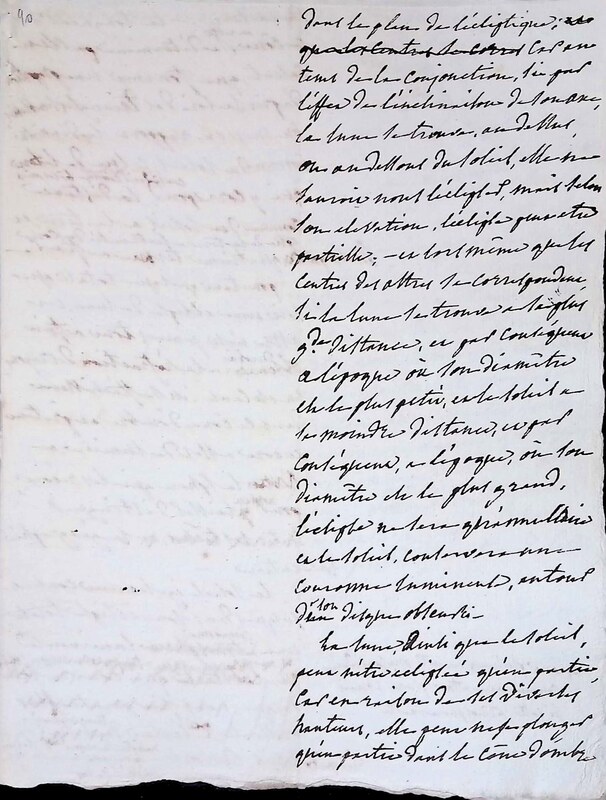 90
dans le plan de l'écliptique;
que les centres se corres car au
tems de la conjonction, si par
l'effet de l'inclinaison de son axe,
la lune se trouve, au dessus,
ou au dessous du soleil, elle ne
sauroit nous l'éclipser, mais selon
son elevation, l'éclipse peut etre
partielle; – et lors même que les
centres des astres se correspondent,
si la lune se trouve a sa plus
gde distance, et par conséquent
a l'époque où son diamètre
est le plus petit, et le soleil a
sa moindre distance, et par
conséquent, a l'époque, où son
diamètre est le plus grand,
l'éclipse ne sera qu'annullaire
et le soleil, conservera une
couronne lumineuse, autour
d' son disque obscurci –
La lune ainsi que le soleil,
peut n'être eclipsée qu'en partie,
car en raison de ses diverses
hauteurs, elle peut ne se plonger
qu'en partie dans le cône d'ombre